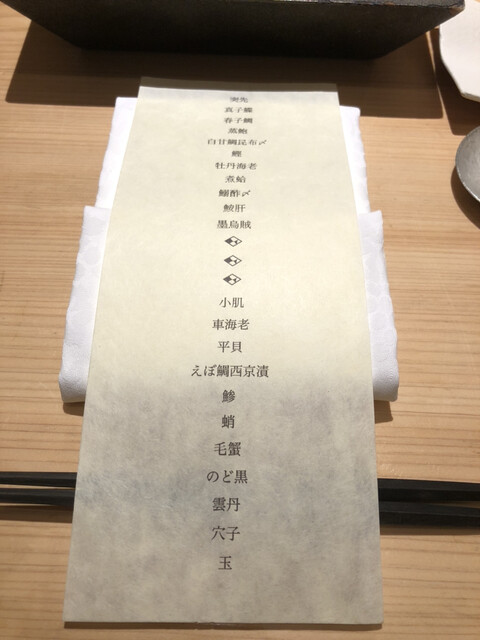 突先
真子鰈
春子鯛
蒸鮑
白甘鯛昆布〆
鰹
牡丹海老
煮蛤
鰯酢〆
鮟肝
墨烏賊
小肌
車海老
平貝
えぼ鯛西京漬
鯵
蛸
毛蟹
のど黒
雲丹
穴子
玉